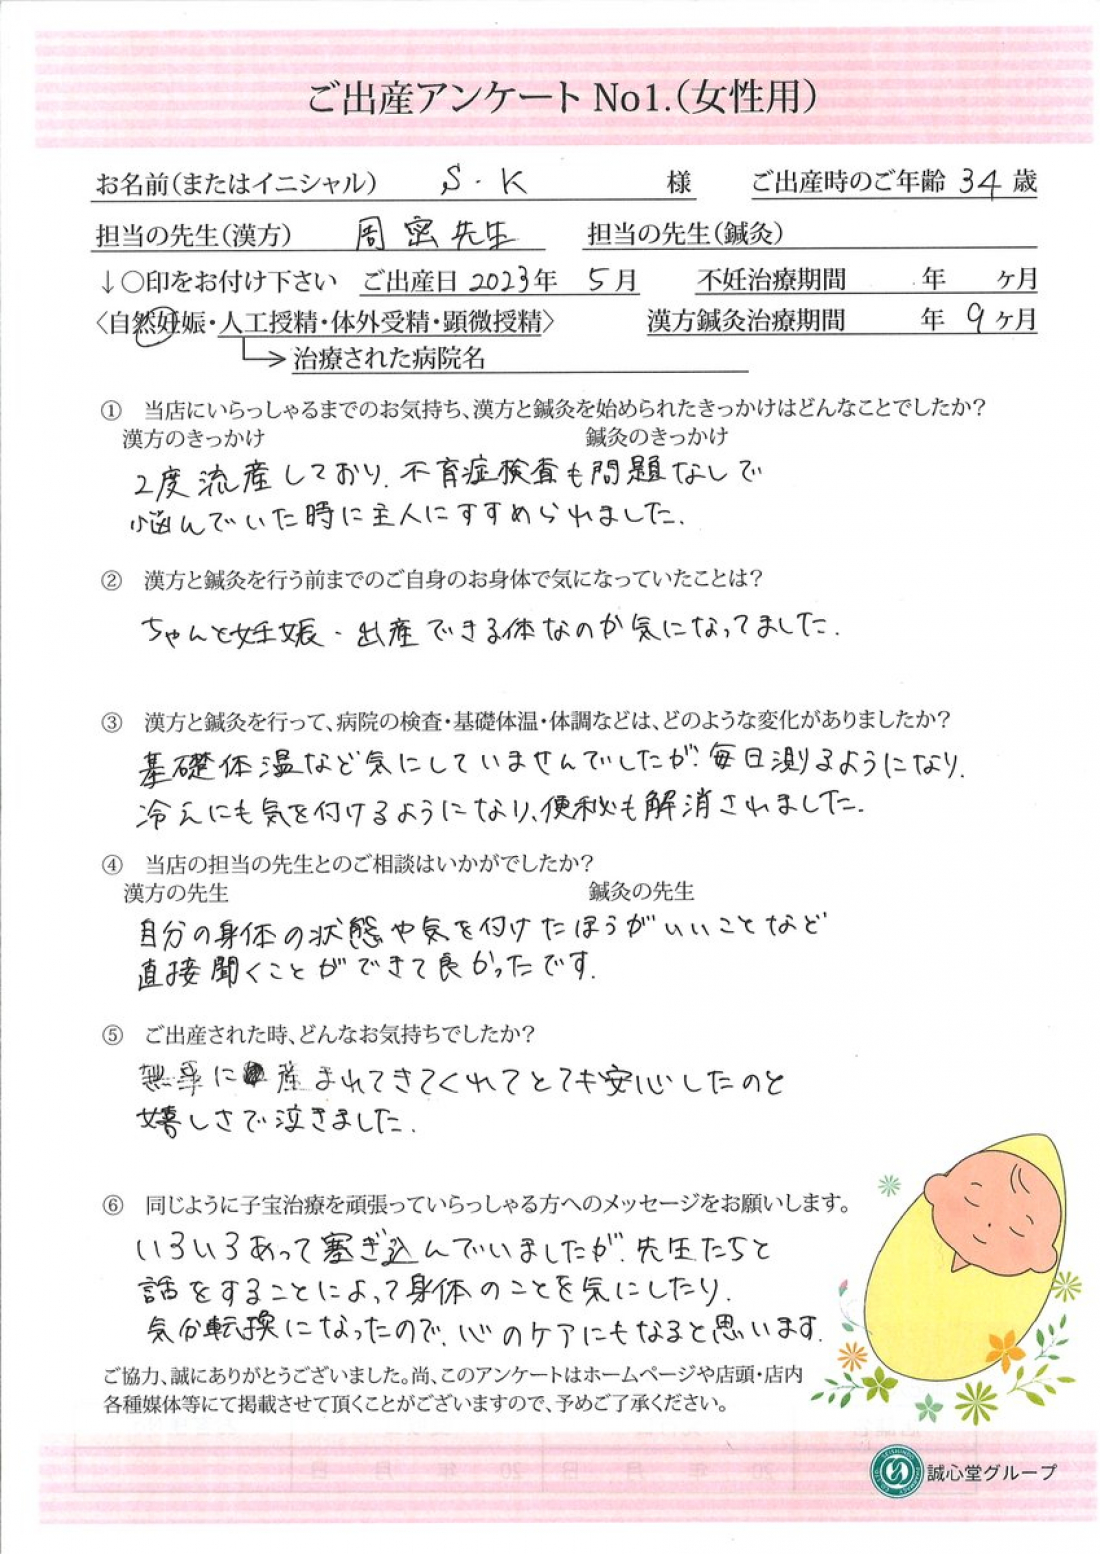 ご出産アンケート No1.(女性用)
お名前(またはイニシャル) S・K 様 ご出産時のご年齢 34 歳
担当の先生(漢方) 周密先生 担当の先生(鍼灸)
↓○印をお付け下さい ご出産日 2023年 5月 不妊治療期間 年 ヶ月
〈自然妊娠・人工授精・体外受精・顕微授精〉 漢方鍼灸治療期間 年 9ヶ月
治療された病院名
① 当店にいらっしゃるまでのお気持ち、漢方と鍼灸を始められたきっかけはどんなことでしたか?
漢方のきっかけ 鍼灸のきっかけ
2度流産しており、不育症検査も問題なしで
悩んでいた時に主人にすすめられました。
② 漢方と鍼灸を行う前までのご自身のお身体で気になっていたことは?
ちゃんと妊娠・出産できる体なのか気になってました。
③ 漢方と鍼灸を行って、病院の検査・基礎体温・体調などは、どのような変化がありましたか?
基礎体温など気にしていませんでしたが、毎日測るようになり、
冷えにも気を付けるようになり、便秘も解消されました。
④ 当店の担当の先生とのご相談はいかがでしたか?
漢方の先生 鍼灸の先生
自分の身体の状態や気を付けたほうがいいことなど
直接聞くことができて良かったです。
⑤ ご出産された時、どんなお気持ちでしたか?
無事に産まれてきてくれてとても安心したのと
嬉しさで泣きました。
⑥ 同じように子宝治療を頑張っていらっしゃる方へのメッセージをお願いします。
いろいろあって塞ぎ込んでいましたが、先生たちと
話をすることによって身体のことを気にしたり、
気分転換になったので、心のケアにもなると思います。
ご協力、誠にありがとうございました。尚、このアンケートはホームページや店頭・店内
各種媒体等にて掲載させて頂くことがございますので、予めご了承ください。
誠心堂グループ